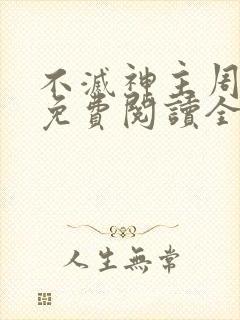 不滅神主周
免費閱讀全
人生無常